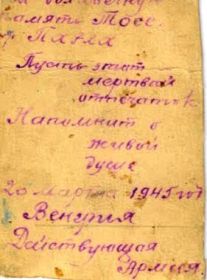 памяти Тосе
Пусть этот
мертвый
отпечаток
Напомнит о
живой
душе
20 марта 1945 год
Венгрия
Действующая
Армия